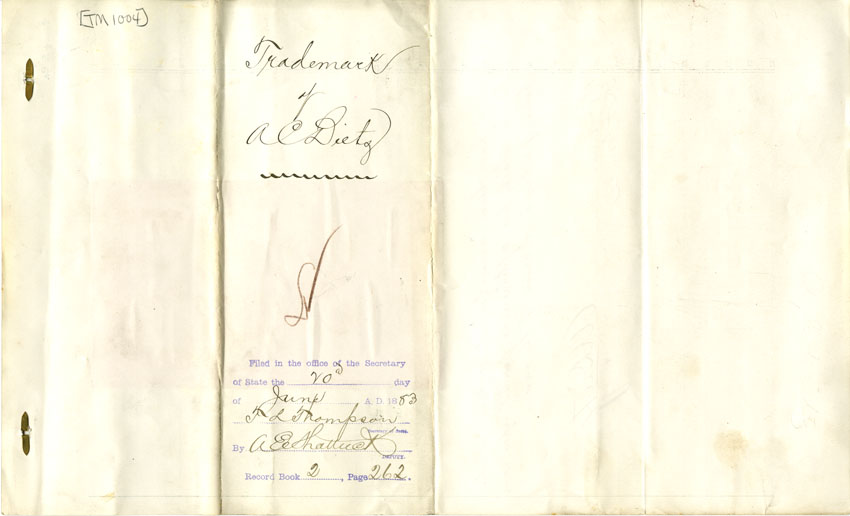 [TM1004]
Trademark
of
A C Dietz
Filed in the office of the Secretary
of State the 20d day
of June A. D. 1883
T L Thompson
Secretary of State.
By A E Shattuck
DEPUTY.
Record Book 2, Page 262.